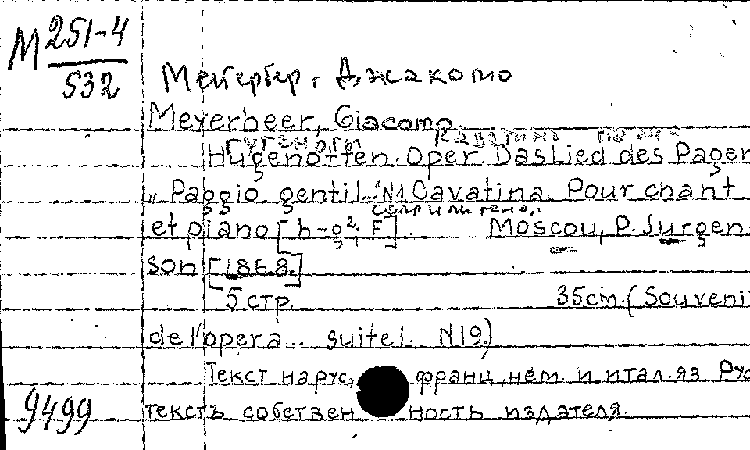 М 251-4
532
Мейербер, Джакомо
Meyerbeer, Giacomo
Гугеноты
Hugenotten. Oper. Das Lied des Pagen
„Paggio gentil“ N1 Cavatina. Pour chant
et piano [h-g². F] Moscou, P. Jurgen-
son [1868.]
5 стр. 35cm. (Souveni
de l'opera .. suite I N 19.)
Текст на рус., франц, нем. и итал. яз Рус
9499
текстъ собствен ность издателя.